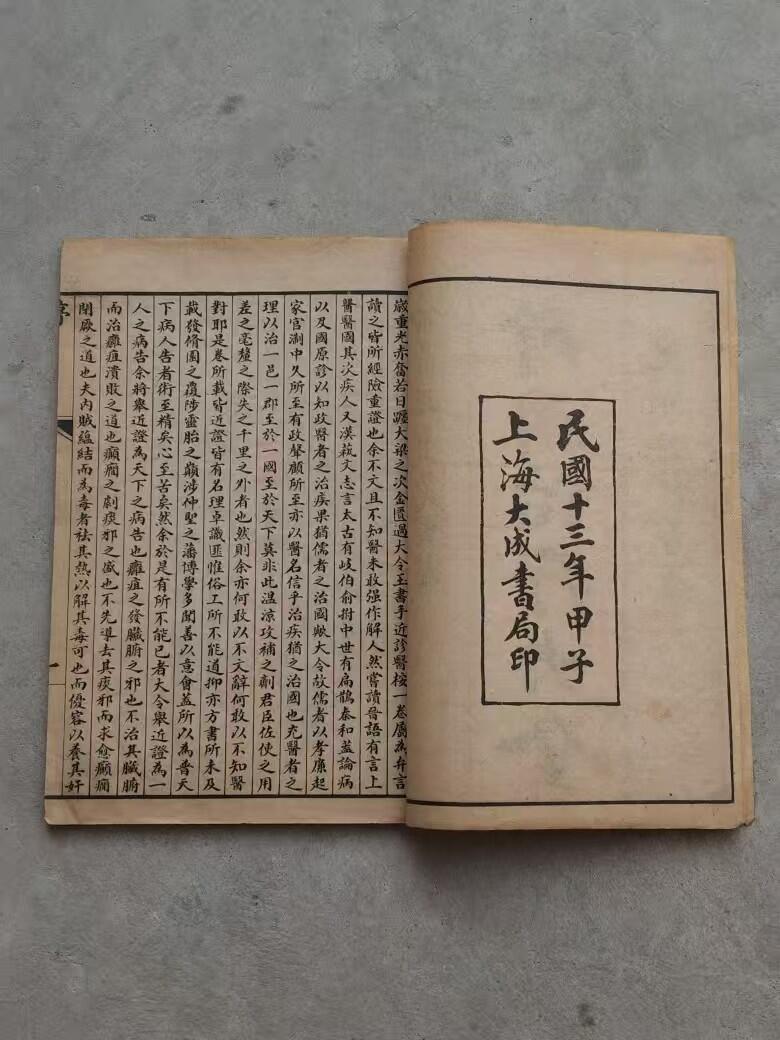 民國十三年甲子
上海大成書局印
歲重光赤奮若日躔大梁之次金匱過大令玉書手近診醫按一卷屬為弁言
讀之皆所經險重證也余不文且不知醫未敢强作解人然嘗讀晉語有言上
醫醫國其次疾人又漢蓺文志言太古有岐伯俞拊中世有扁鵲秦和蓋論病
以及國原診以知政醫者之治疾果猶儒者之治國歟大令故儒者以孝廉起
家官浙中久所至有政聲顧所至亦以醫名信乎治疾猶之治國也充醫者之
理以治一邑一郡至於一國至於天下莫非此温涼攻補之劑君臣佐使之用
差之毫釐之際失之千里之外者也然則余亦何敢以不文辭何敢以不知醫
對耶是卷所載皆近證皆有名理卓識匪惟俗工所不能道抑亦方書所未及
載發脩園之覆陟靈胎之巔涉仲聖之藩博學多聞善以意會蓋所以為普天
下病人告者術至精矣心至苦矣然余於是有所不能已者大令舉近證為一
人之病告余將舉近證為天下之病告也癰疽之發臟腑之邪也不治其臟腑
而治癰疽潰敗之道也癲癇之劇痰邪之感也不先導去其痰邪而求愈癲癇
閉厥之道也夫内賊蘊結而為毒者祛其熱以解其毒可也而優容以養其奸
一